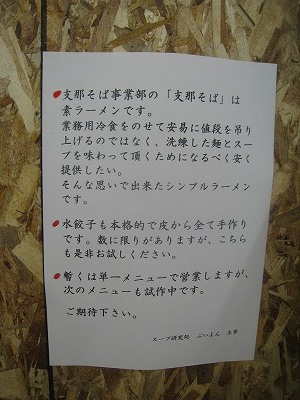 支那そば事業部の「支那そば」は
素ラーメンです。
業務用冷食をのせて安易に値段を吊り
上げるのではなく、洗練した麺とスー
プを味わって頂くためになるべく安く
提供したい。
そんな思いで出来たシンプルラーメン
です。
水餃子も本格的で皮から全て手作り
です。数に限りがありますがこちら
も是非お試しください。
暫くは単一メニューで営業しますが、
次のメニューも試作中です。
ご期待下さい。